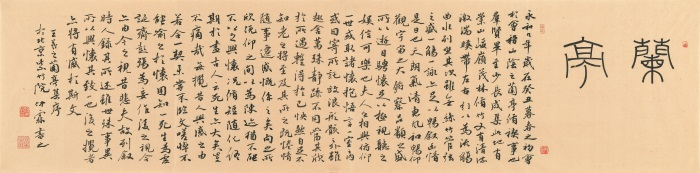 蘭亭
永和九年歲在癸丑暮春之初會
於會稽山陰之蘭亭脩禊事也
群賢畢至少長咸集此地有
崇山峻嶺茂林脩竹又有清流
激湍映帶左右引以為流觴
曲水列坐其次雖無絲竹管弦
之盛一觴一詠亦足以暢敘幽情
是日也天朗氣清惠風和暢仰
觀宇宙之大俯察品類之盛
所以遊目騁懷足以極視聽之
娛信可樂也夫人之相與俯仰
一世或取諸懷抱悟言一室之內
或因寄所託放浪形骸之外雖
趣舍萬殊靜躁不同當其欣
於所遇暫得於己快然自足不
知老之將至及其所之既惓情
隨事遷感慨係之矣向之所
欣俛仰之間以為陳迹猶不能
不以之興懷況脩短隨化終
期於盡古人云死生亦大矣豈
不痛哉每攬昔人興感之由
若合一契未嘗不臨文嗟悼不
能喻之於懷固知一死生為虛
誕齊彭殤為妄作後之視今
亦由今之視昔悲夫故列敘
時人錄其所述雖世殊事異
所以興懷其致一也後之攬者
亦將有感於斯文
王羲之蘭亭集序
於北京竹院書之